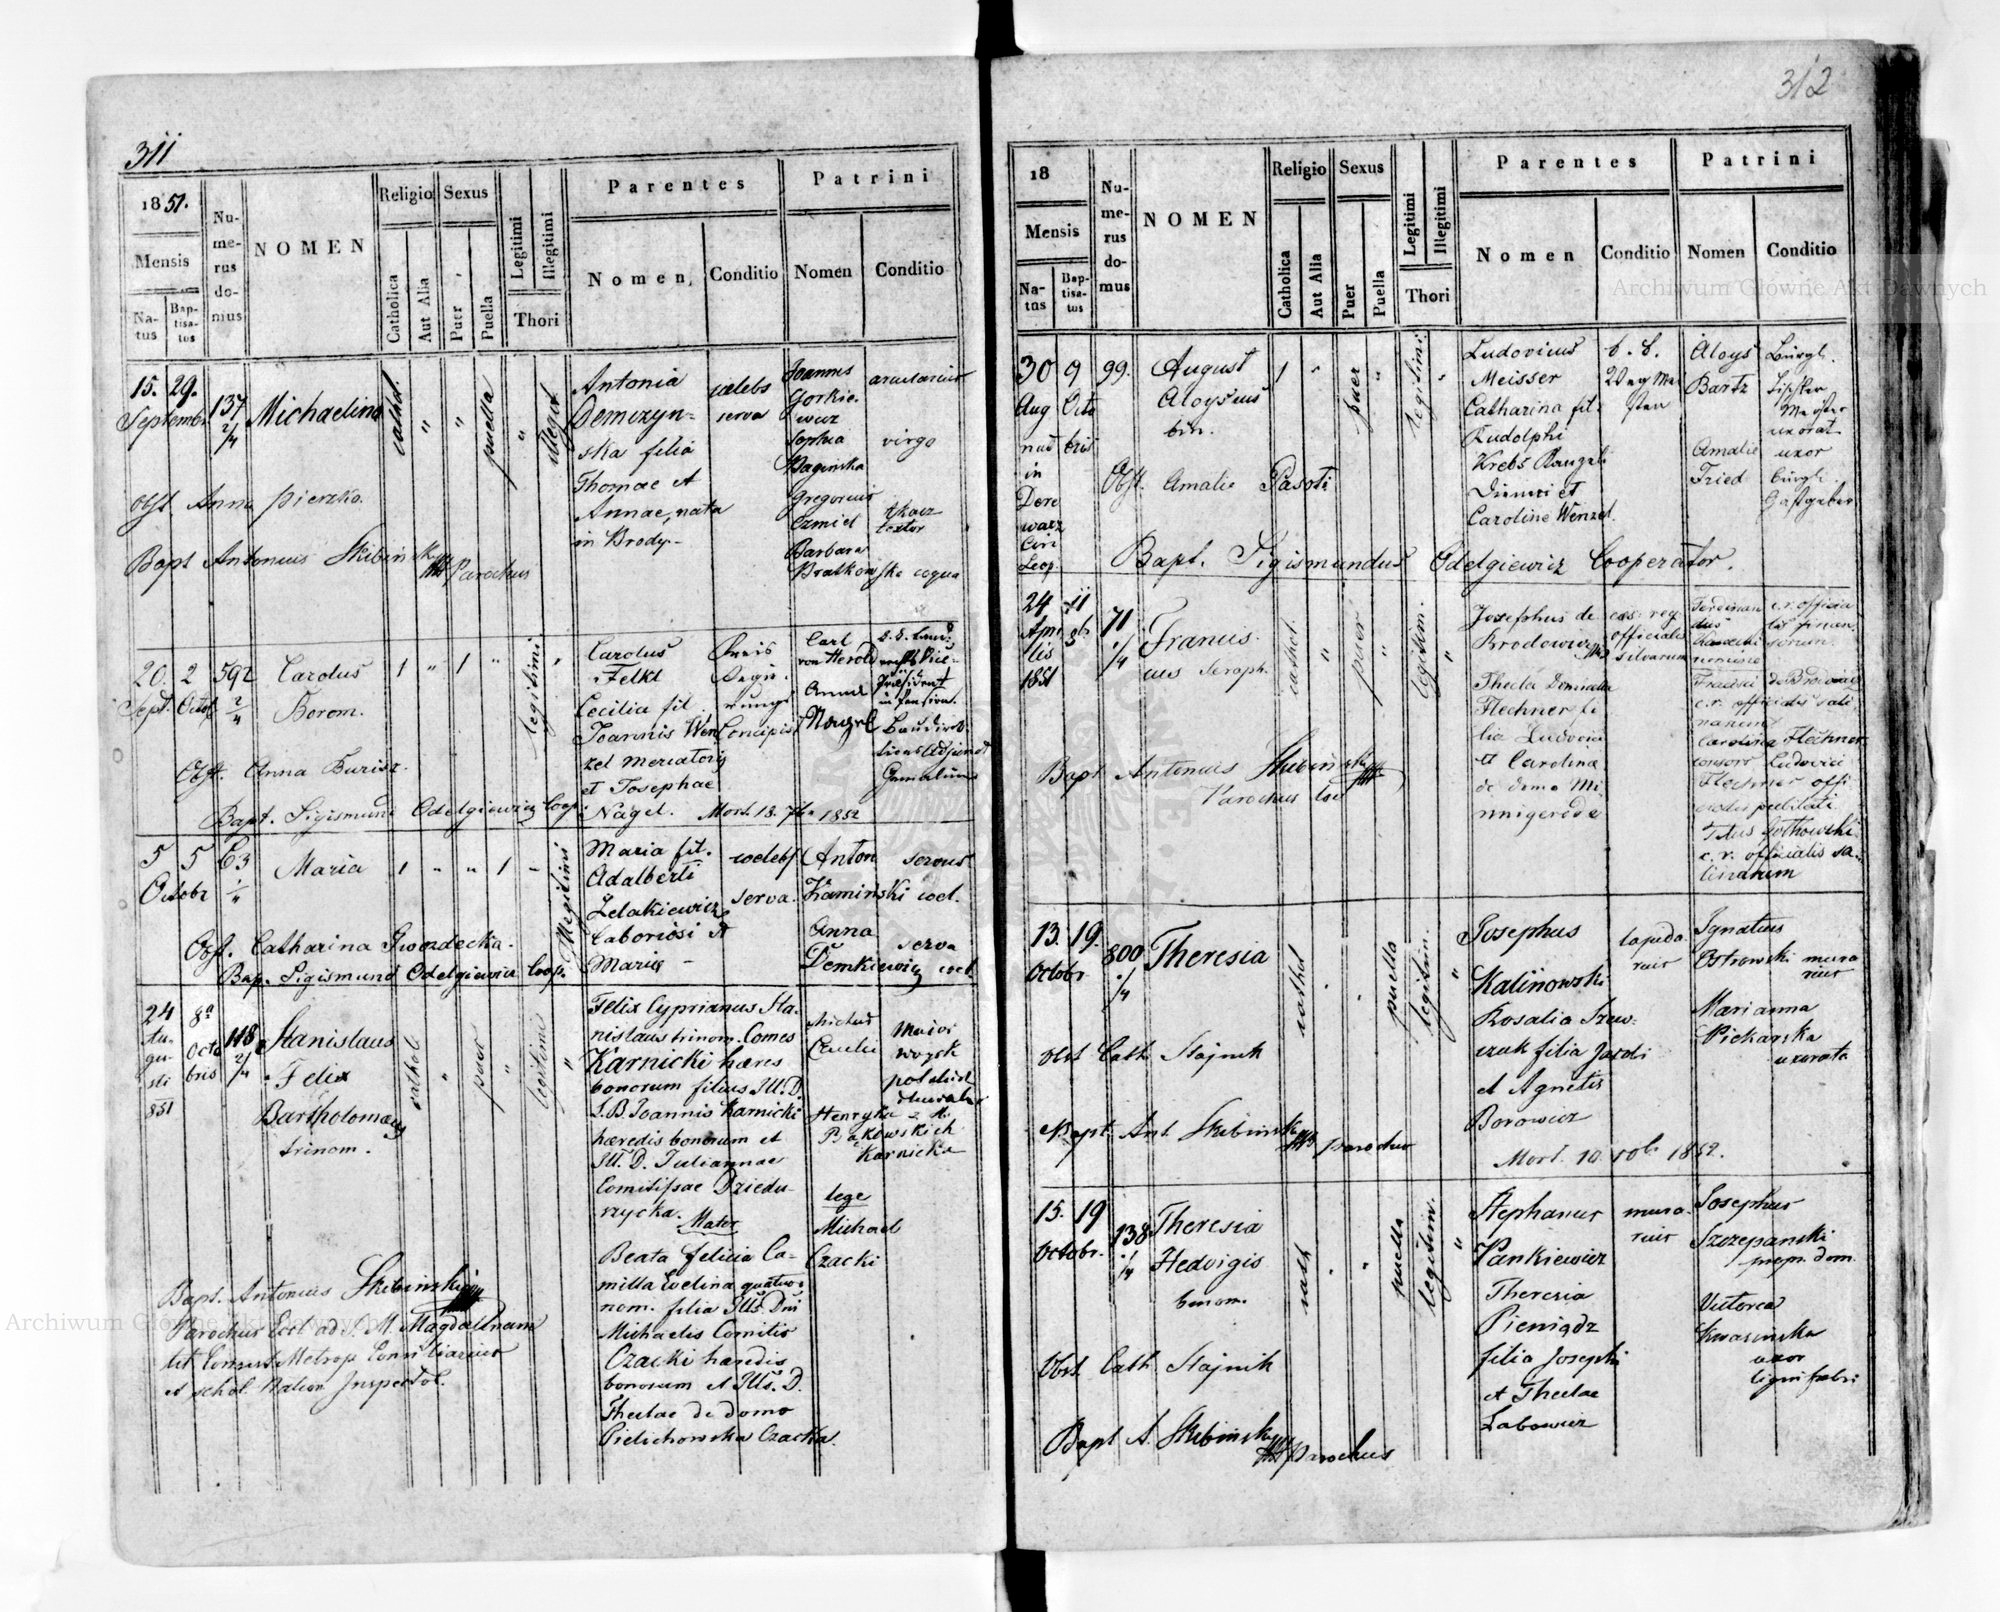 311
1851.
Mensis
Natus
Baptisatus
Numerus domus
NOMEN
Religio
Catholica
Aut Alia
Sexus
Puer
Puella
Legitimi
Illegitimi
Thori
Parentes
Nomen,
Conditio
Patrini
Nomen
Conditio
15. 29.
Septembr
137
2/4
Michaelina
cathol.
"
"
puella
"
illegit
Antonia
Demczyn-
ska filia
Thomae et
Annae, nata
in Brody-
caelebs
serva
Joannes
Gorkie-
wicz
Sophia
virgo
Gregorius
textor
Barbara
Bratkowska coqua
Obst Anna Pierzko
Bapt Antonius Skibiński Parochus
20. 2
Sept. Octob
592
2/4
Carolus
Borom.
1 " 1 "
legitimi
"
Carolus
Felkl
Cecilia fil.
Joannis Wen
zel mercatoris
et Josephae
Nagel.
Kreis
Regie-
rungs
Concipist
Carl
von Herold
Präsident
in Pension.
Anna
Obst. Anna Burisz.
Bapt. Sigismund Odelgiewicz Coop.
Mort. 18. 7br 1852
5 5
Octobr
63
1/4
Maria
1 " " 1 -
Illegitimi
Maria fil.
Adalberti
Zelakiewicz
Laboriosi et
Maria -
coelebs
serva.
Anton
Kaminski coel.
servus
Anna
Demkiewicz coel.
serva
Obst. Catharina Gwozdecka.
Bap. Sigismund Odelgiewicz Coop.
24
Au-
gu-
sti
851
8a
Octo
bris
118
2/4
Stanislaus
Felix
Bartholomaeus
trinom.
cathol
"
puer
"
legitimi
"
Felix Cyprianus Sta-
nislaus trinom. Comes
Karnicki haeres
bonorum filius Ill. D.
S. B. Joannis Karnicki
haeredis bonorum et
Ill. D. Juliannae
Comitissae Dziedu-
szycka.
Mater
Beata Felicia Ca-
milla Ewelina quatuor
nom. filia Ills. Dni
Michaelis Comitis
Czacki haeredis
bonorum et Ills. D.
Theclae de domo
Pielichowska Czacka.
Michael
Czacki
woysk
polskich
Henryka z Hr.
Bąkowskich
Karnicka
lege
Michael
Czacki
Bapt. Antonius Skibinski
Parochus Eccl ad S. M. Magdalenam
lit Consist Metrop Consiliarius
et schol. Inspector.
312
18
Mensis
Natus
Baptisatus
Numerus domus
NOMEN
Religio
Catholica
Aut Alia
Sexus
Puer
Puella
Legitimi
Illegitimi
Thori
Parentes
Nomen
Conditio
Patrini
Nomen
Conditio
30 9
Aug Octo
bris
in
Dere
wacz
Circ
Leop.
99.
August
Aloysius
bin.
1 "
puer
"
legitimi
"
Ludovicus
Meisser
Catharina fil.
Rudolphi
Krebs
et
Caroline Wenzel
k. k.
Weg Mei
ster
Aloys
Bartz
Bürgl.
Tischler
Meister
uxorat
Amalie
Fried
uxor
bürgl.
Gastgeber
Obst. Amalie Pasoti
Bapt. Sigismundus Odelgiewicz Cooperator.
24 11
Apri
lis
1851
8br
71
1/4
Francis
cus Seraph.
cathol.
"
puer
"
legitim.
"
Josephus de
Brodowicz
Thecla Dominica
Flechner fi
lia Ludovici
et Carolinae
de domo Mi
nnigerode
caes. reg
officialis
silvarum
Ferdinan
dus
c. r. officia
lis
c. r. officialis sali
narum
Carolina Flechner
consors Ludovici
Flechner offi
Titus
c. r. officialis sa-
linarum
Bapt Antonius Skibiński
Parochus loci
13. 19.
Octobr.
800
1/4
Theresia
cathol
puella
legitim.
"
Josephus
Kalinowski
Rosalia Szew-
czuk filia Jacobi
et Agnetis
Borowicz
lapida
rius
Ignatius
Ostrowski
mura
rius
Marianna
Piekarska
uxorata
Obst Cath. Stajnik
Bapt. Ant. Skibinski Parochus
Mort. 10. 8br. 1852.
15. 19
Octobr.
138
1/4
Theresia
Hedvigis
binom.
cath
"
puella
legitim.
"
Stephanus
Pankiewicz
Theresia
Pieniądz
filia Josephi
et Theclae
Labowicz
mura-
rius
Josephus
Szczepanski
propr. dom.
Victorea
Kwasinska
uxor
lignifabri
Obst. Cath. Stajnik
Bapt A. Skibinski Parochus
Archiwum Główne Akt Dawnych
Archiwum Główne Akt Dawnych